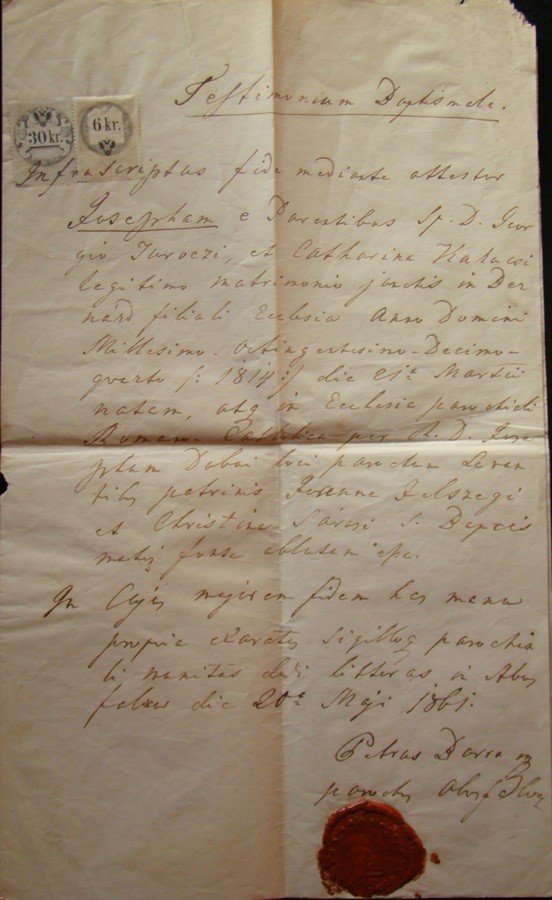 Testimonium Baptismale.
30 kr.
6 kr.
Infrascriptus fide mediante attestor
Josepham e Parentibus Sp. D. Geor
gio Turoczi, et Catharina
legitimo matrimonio junctis in Ber
nárd filiali Ecclesia Anno Domini
Millesimo-Octingentesimo-Decimo-
quarto /: 1814 :/ die Martii
natam, atq in Ecclesia parochiali
Romano Catholica per R. D. Jose
phum Dobai loci parochum Levan
tibus patrinis Joanne Jelszegi
et Christina Sárosi S. Baptis
matis fonte ablutam esse.
In Cujus majorem fidem has manu
propria exaratas sigilloq parochia
li munitas dedi litteras in Abos
falva die 20a Maji 1861.
Petrus Darra
parochus